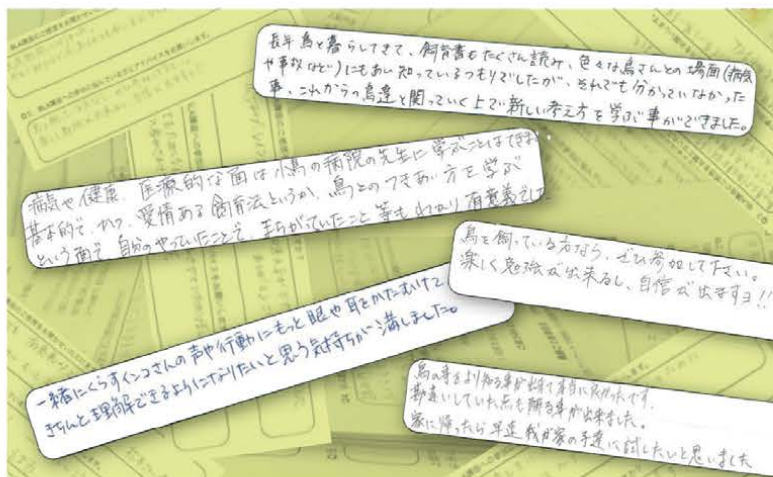 長年鳥と暮らしてきて、飼育書もたくさん読み、色々な鳥さんとの場面(病気
や事故など)にもあい知っているつもりでしたが、それでも分かっていなかった
事、これからの鳥達と関っていく上で新しい考え方を学ぶ事ができました。
病気や健康、医療的な面は小鳥の病院の先生に学ぶことはできます
基本的で、かつ、愛情ある飼育法というか、鳥とのつきあい方を学ぶ
という面で、自分のやっていたことで、まちがっていたこと等もわかり有意義でした
鳥を飼っている方なら、ぜひ参加して下さい。
楽しく勉強が出来るし、自信が出ますヨ!!
一緒にくらすインコさんの声や行動にもっと眼や耳をかたむけて
きちんと理解できるようになりたいと思う気持ちが満しました。
鳥の事をより知る事が出来て本当に良かったです。
勘違いしていた点も解る事が出来ました。
家に帰ったら早速我が家の子達に試したいと思いました